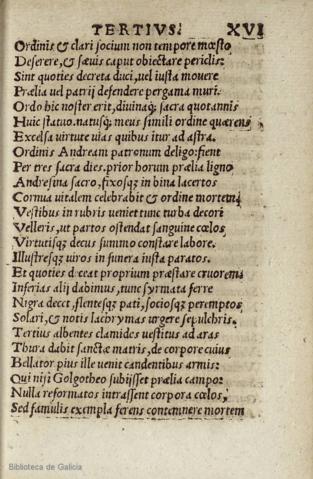 TERTIVS. XVI
Ordinis & clari socium non tempore mœsto
Deserere, & sæuis caput obiectare periclis:
Sint quoties decreta duci, uel iusta mouere
Prælia uel patrij defendere pergama muri.
Ordo hic noster erit, diuinaq; sacra quotannis
Huic statuo. natusq; meus simili ordine quærens
Excelsa uirtute uias quibus itur ad astra.
Ordinis Andream patronum deligo: fient
Per tres sacra dies. prior horum prælia ligno
Andresina sacro, fixosq; in bina lacertos
Cornua uitalem celebrabit & ordine mortem;
Vestibus in rubris ueniet tunc turba decori
Velleris, ut partos ostendat sanguine cœlos,
Virtutisq; decus summo constare labore.
Illustresq; uiros in funera iusta paratos.
Et quoties deceat proprium præstare cruorem;
Inferias alij dabimus, tunc syrmata ferre
Nigra decet, flentesq; pati, sociosq; peremptos
Solari, & notis lacrymas urgere sepulchris.
Tertius albentes clamides uestitus ad aras
Thura dabit sanctæ matris, de corpore cuius
Bellator pius ille uenit candentibus armis:
Qui nisi Golgotheo subijsset prælia campo:
Nulla reformatos intrassent corpora cœlos,
Sed famulis exempla ferens contemnere mortem
Biblioteca de Galicia